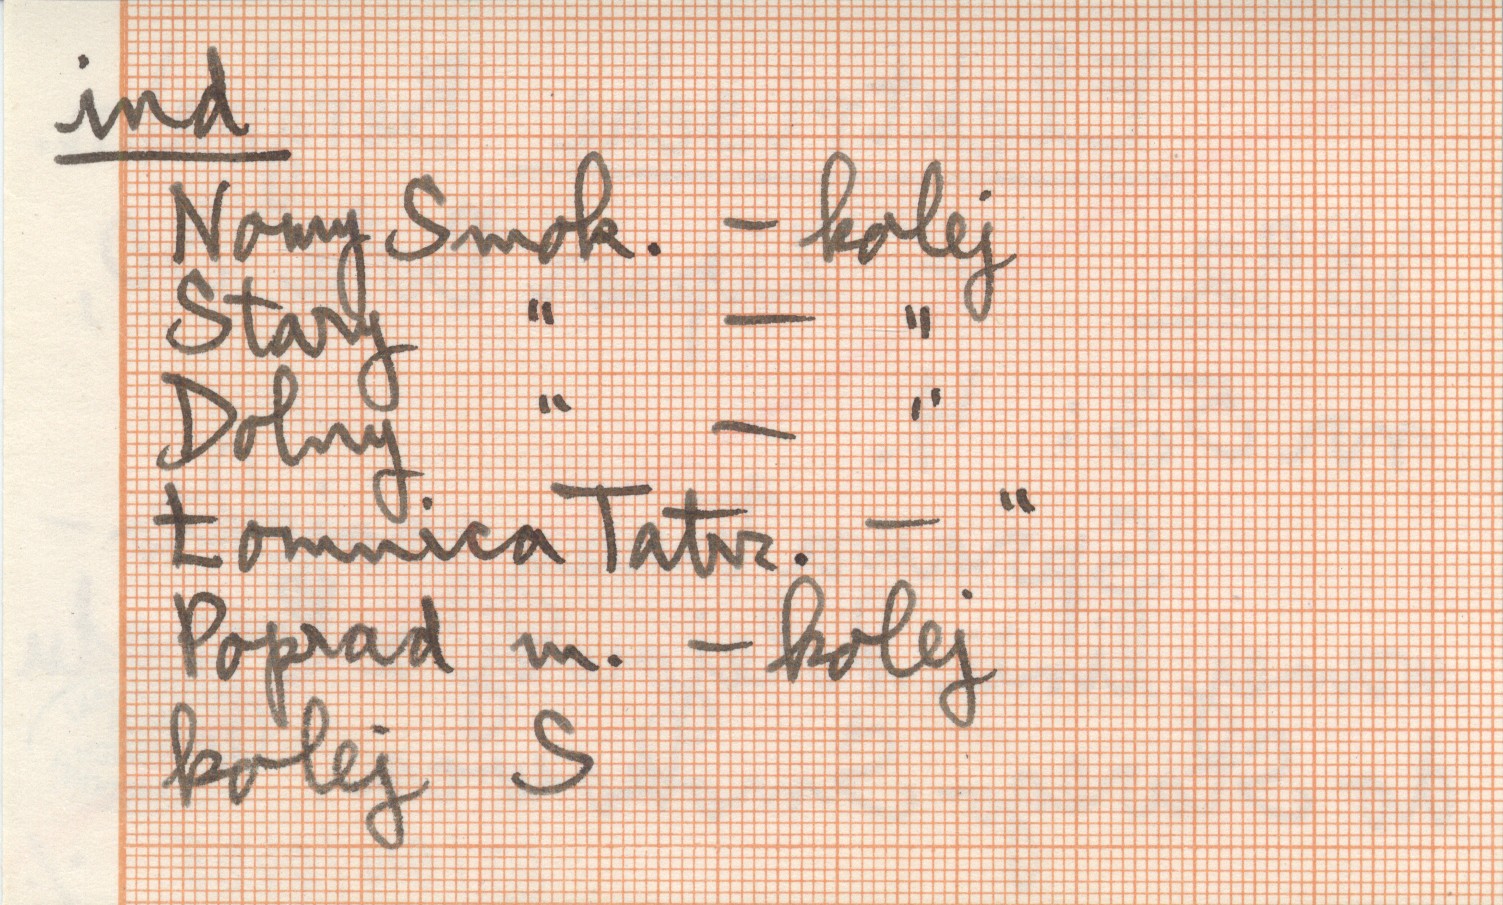 ind
Nowy Smok. - kolej
Stary " - "
Dolny " - "
Łomnica Tatrz. - "
Poprad m. - kolej
kolej S